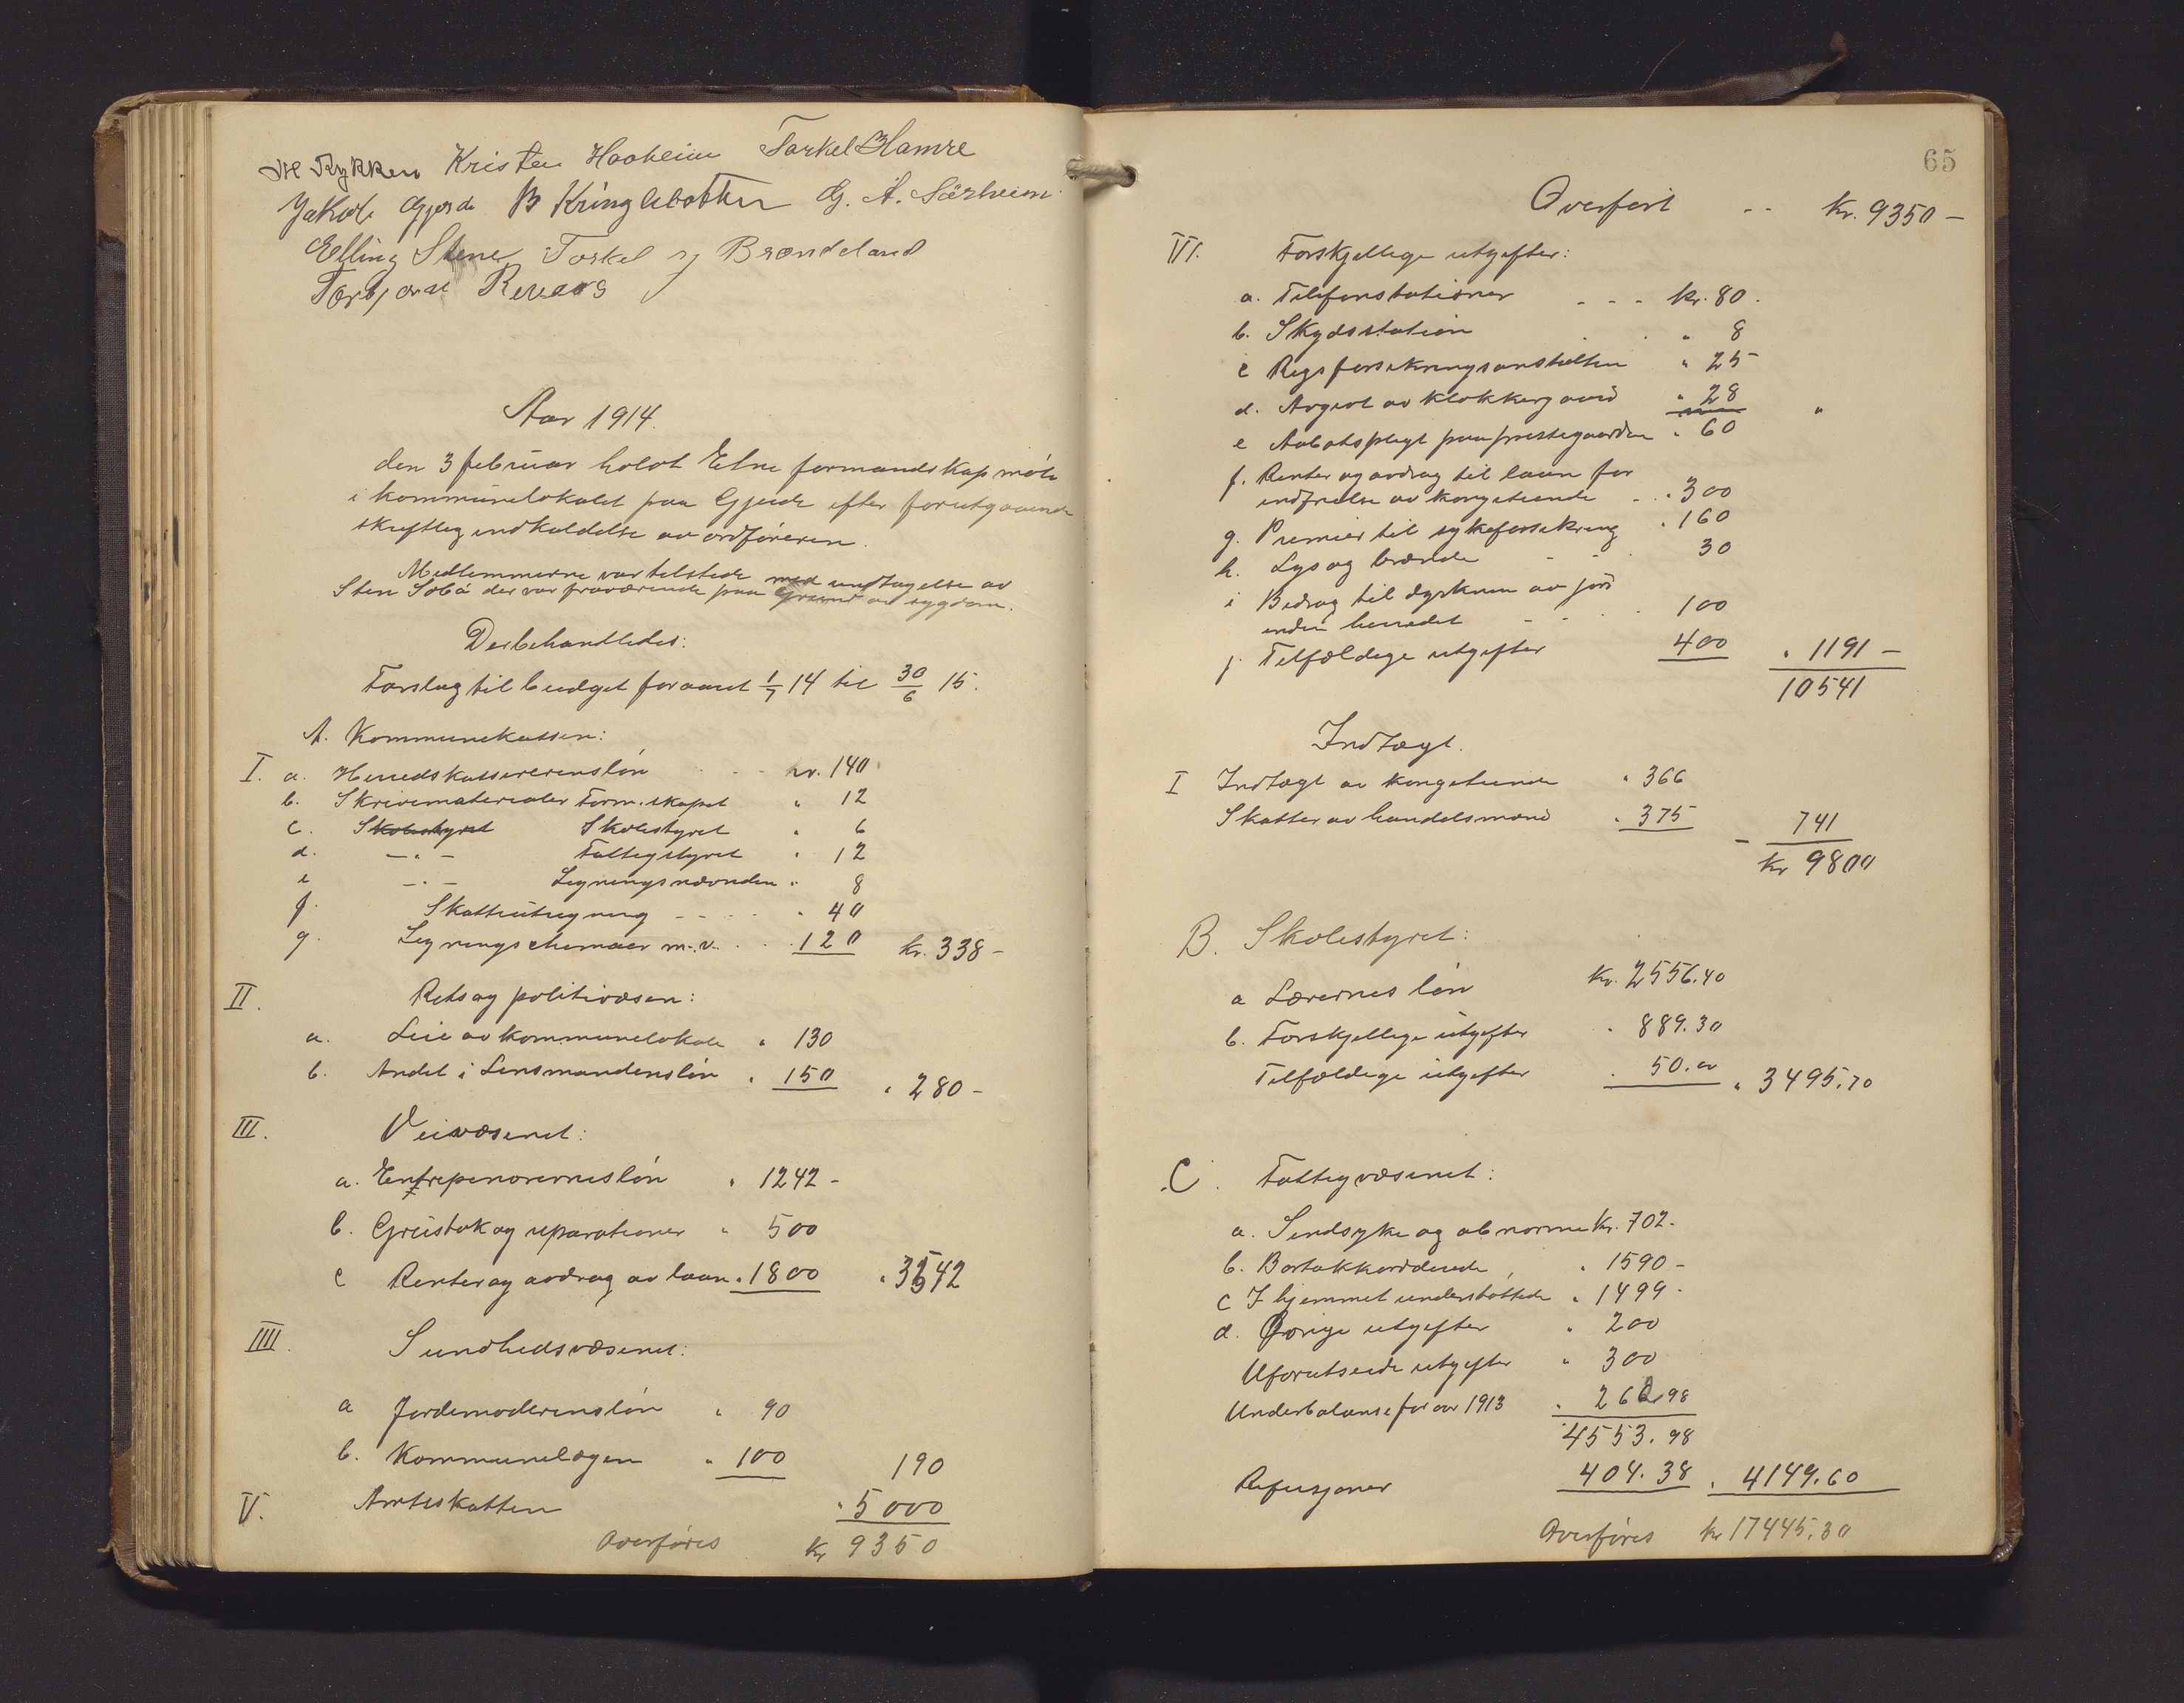 Kristen Haaheim Torkel Hamre
Jakob Gjerde B Kringlebotten G. A. Sørheim
Elling Stene Torkel Brændeland
Torbjørn
Aar 1914.
den 3 februar holdt Etne formandskap møte
i kommunelokalet paa Gjerde efter forutgaaende
skriftleg indkaldelse av ordføreren.
Medlemmerne var tilstede med undtagelse av
Sten Sæbø der var fraværende paa Grund av sygdom.
Der behandledes:
Forslag til budget for aaret 1/7 14 til 30/6 15.
A. Kommunekassen:
I. a. Herredskassererens løn - - - kr. 140
b. Skrivematerialer Form.skapet " 12
c. Skolestyret Skolestyret " 6
d. — " — Fattigstyret " 12
e — " — Ligningsnævnden " 8
f. Skatteutregning - - - - " 40
g. Ligningschemaer m.v. . . . 120 kr. 338 -
II. Rets og politivæsen:
a. Leie av kommunelokale " 130
b. Andel i Lensmandensløn " 150 " 280 -
III. Veivæsenet:
a. Entrepenørernes løn " 1242 -
b. Grustak og reparationer " 500
c Renter og avdrag av laan " 1800 " 3542
IIII. Sundhedsvæsenet:
a Jordemoderens løn " 90
b. Kommunelægen " 100 190
V. Amtsskatten " 5000
Overføres kr 9350
65
Overført - - Kr. 9350 —
VI. Forskjellige utgifter:
a. Telefonstationer - - - kr. 80.
b. Skydsstation " 8
c Rigsforsikringsanstalten " 25
d. Avgivt av klokkergaard " 28 "
e Aabotspligt paa prestegaarden " 60
f. Renter og avdrag til laan for
indfrielse av kongetiende - . . 300
g. Premier til sykeforsikring . 160
h. Lys og brænde - - 30
i Bidrag til dyrkning av jord
inden herredet - - . 100
j. Tilfældige utgifter 400 " 1191 —
10541
Indtægt.
I Indtægt av kongetiende " 366
Skatter av handelsmænd " 375 - 741
kr 9800
B. Skolestyret:
a Lærernes løn kr. 2556.40
b. Forskjellige utgifter " 889.30
Tilfældige utgifter . 50.00 " 3495.70
C. Fattigvæsenet:
a. Sindsyke og abnorme kr. 702 -
b. Bortakkorderede " 1590 -
c I hjemmet understøttede " 1499 -
d. Øvrige utgifter " 200
Uforutseede utgifter " 300
Underbalanse for aar 1913 " 262.98
4553.98
Refusjoner 404.38 " 4149.60
Overføres kr 17445.30